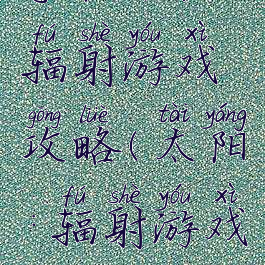 fú shè yóu xì
辐射游戏
gōng lüè : tài yáng
攻略(太阳
: fú shè yóu xì
: 辐射游戏